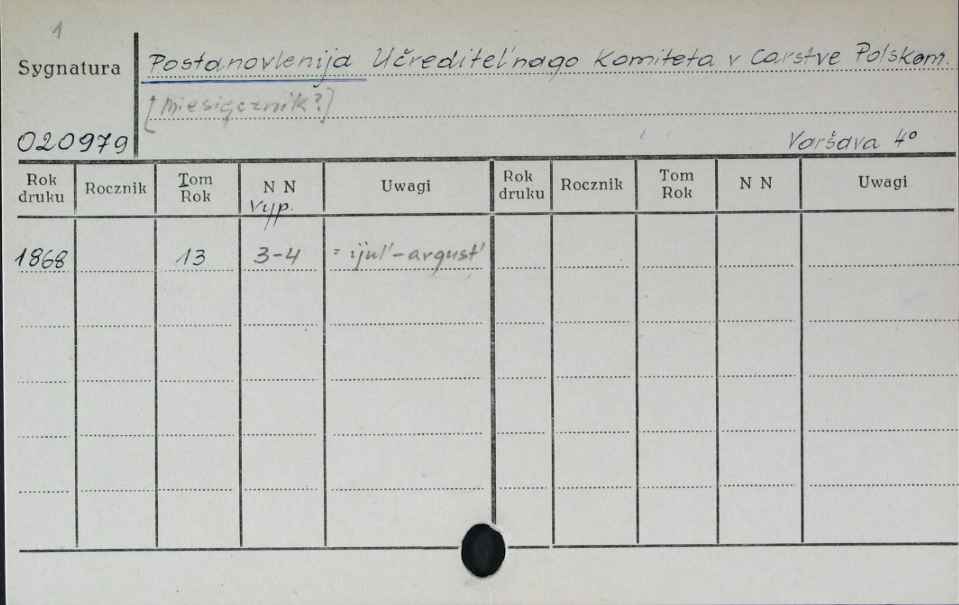 1
Sygnatura
Postanovlenija Učreditel'nago Komiteta v Carstve Polskom.
[miesięcznik?]
020979
Varšava 4°
Rok druku Rocznik Tom Rok N N Uwagi Rok druku Rocznik Tom Rok N N Uwagi
Vyp.
1868 13 3-4 = ijul'-avgust'